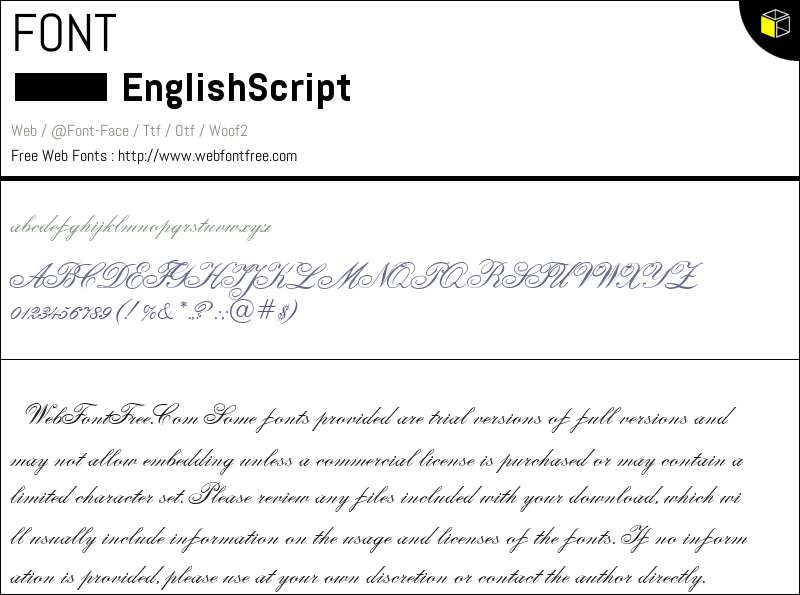 FONT
EnglishScript
Web / @Font-Face / Ttf / Otf / Woof2
Free Web Fonts : http://www.webfontfree.com
abcdefghijklmnopqrstuvwxyz
ABCDEFGHIJKLMNOPQRSTUVWXYZ
0123456789(!%&*.,? :;@#$)
WebFontFree.Com Some fonts provided are trial versions of full versions and
may not allow embedding unless a commercial license is purchased or may contain a
limited character set. Please review any files included with your download, which wi
ll usually include information on the usage and licenses of the fonts. If no inform
ation is provided, please use at your own discretion or contact the author directly.